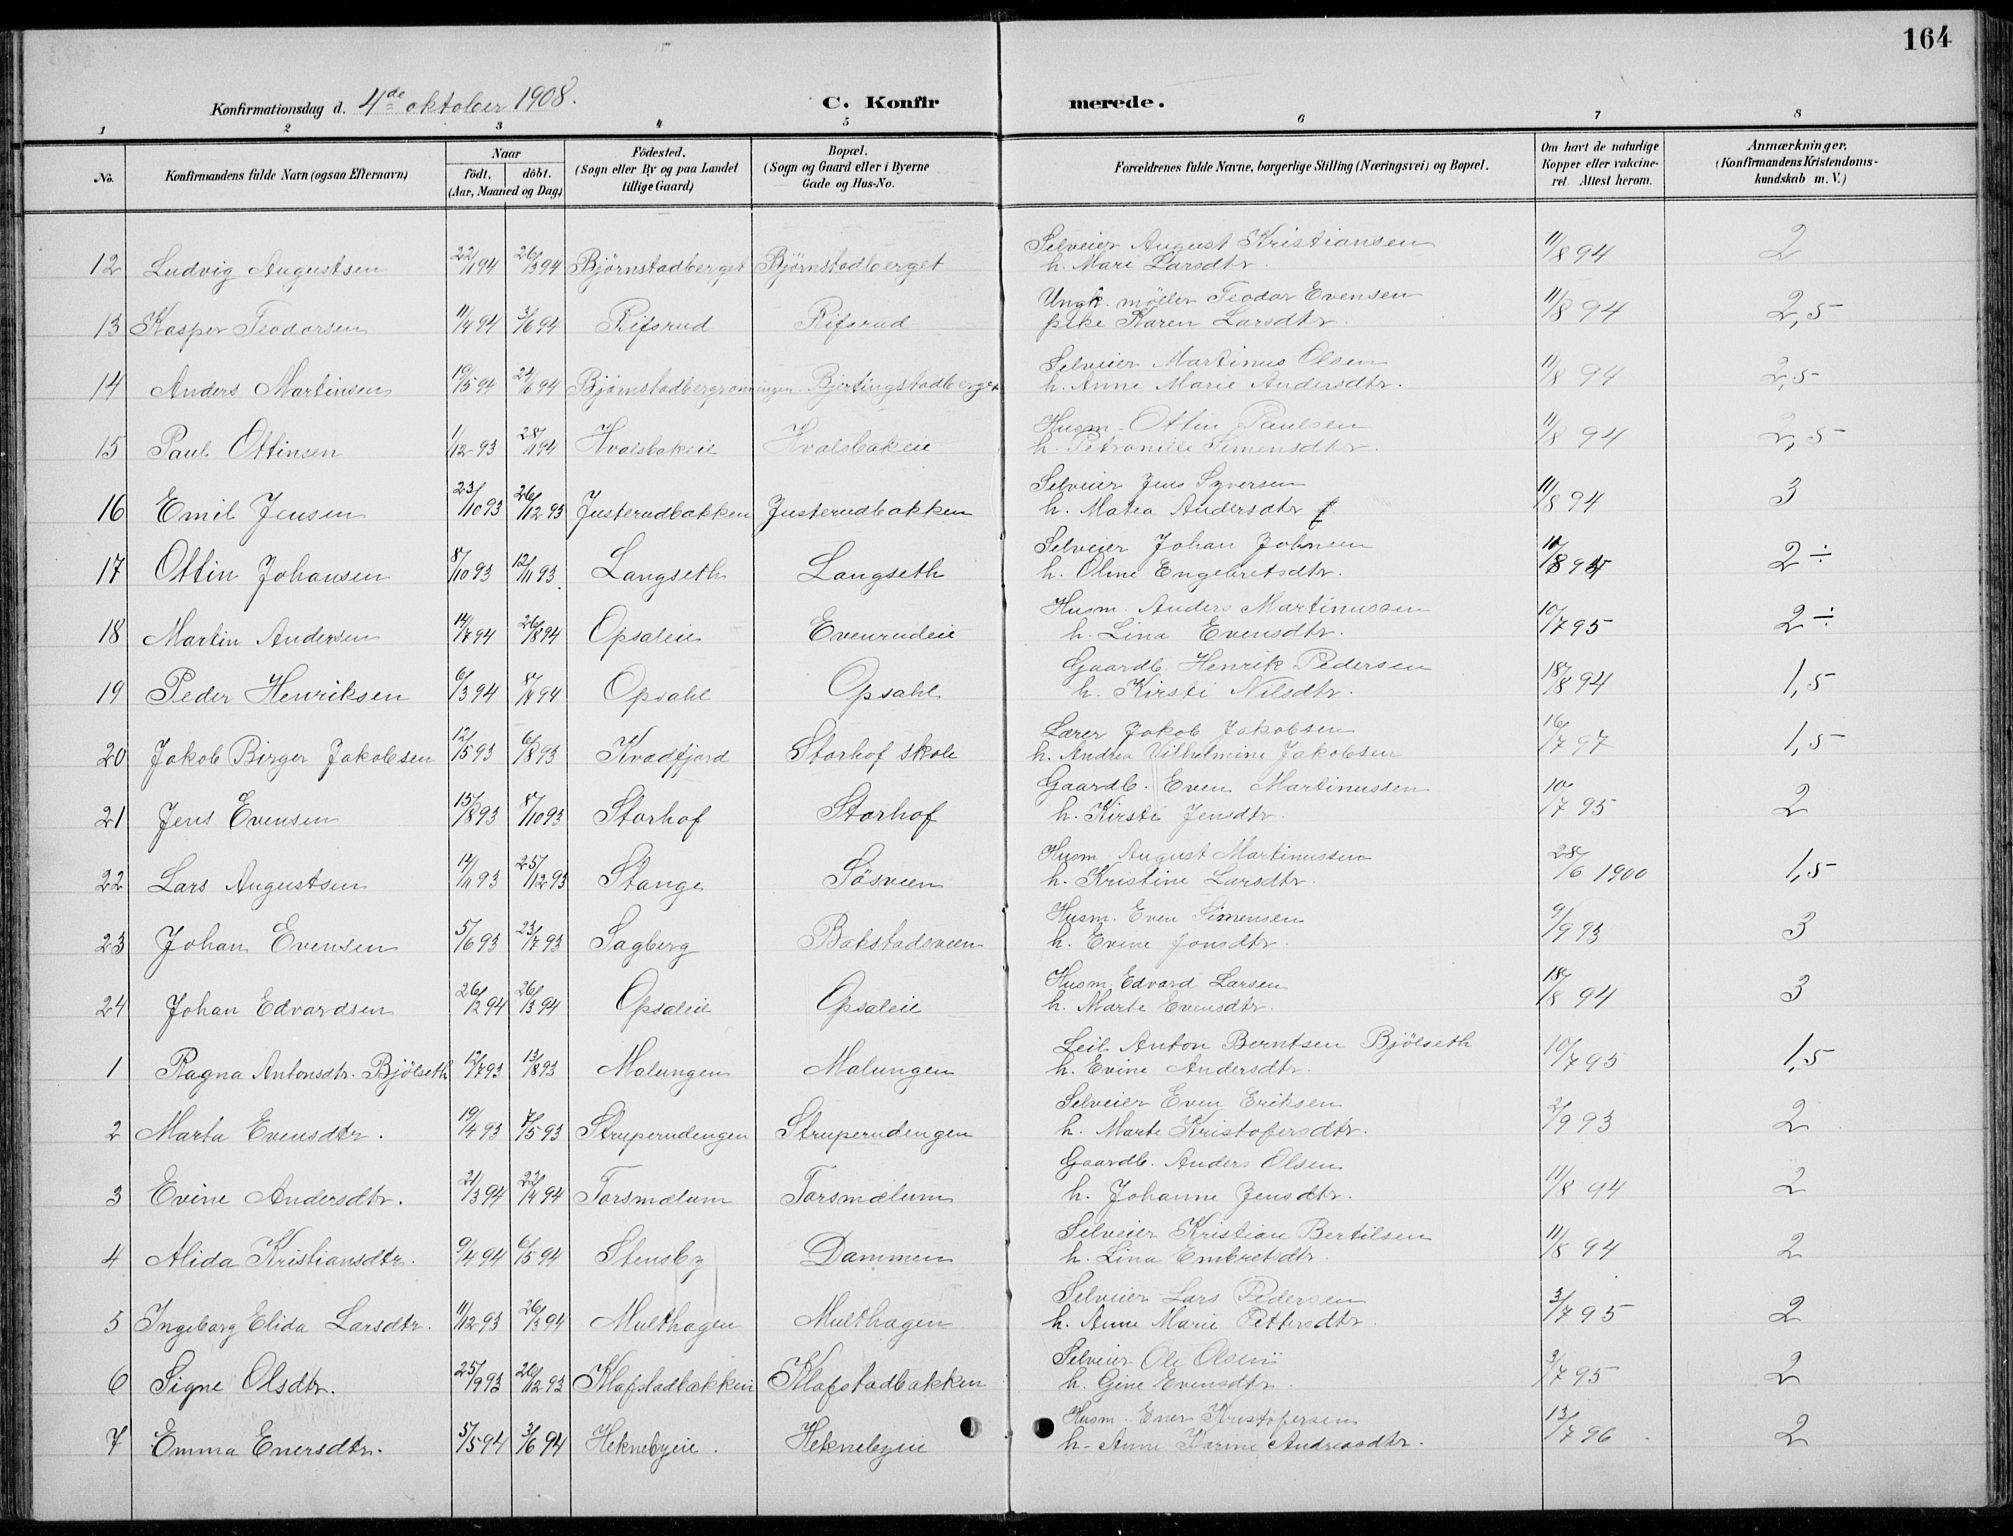 164
Konfirmationsdag d. 4de oktober 1908.
C. Konfir merede.
1 2 3 4 5 6 7 8
No.
Konfirmandens fulde Navn (ogsaa Efternavn)
Naar
födt. döbt.
(Aar, Maaned og Dag)
Födested.
(Sogn eller By og paa Landet
tillige Gaard)
Bopæl.
(Sogn og Gaard eller i Byerne
Gade og Hus-No.
Forældrenes fulde Navne, borgerlige Stilling (Næringsvei) og Bopæl.
Om havt de naturlige
Kopper eller vakcine-
ret. Attest herom.
Anmærkninger.
(Konfirmandens Kristendoms-
kundskab m. V.)
Selveier August Kristiansen
12 Ludvig Augustsen 22/1 94 26/3 94 Björnstadberget Björnstadberget h. Mari Larsdtr. 11/8 94 2
Ungk. møller Teodor Evensen
13 Kasper Teodorsen 11/4 94 3/6 94 Rifsrud Rifsrud pike Karen Larsdtr. 11/8 94 2,5
Selveier Martinus Olsen
14 Anders Martinsen 19/5 94 24/6 94 Bjørnstadbergrønningen Bjertingstadberget h. Anne Marie Andersdtr. 11/8 94 2,5
Husm. Ottin Paulsen
15 Paul Ottinsen 1/12 93 28/1 94 Hvalsbakeie Hvalsbakeie h. Petronille Simensdtr. 11/8 94 2,5
Selveier Jens Syversen
16 Emil Jensen 23/10 93 26/12 93 Justerudbakken Justerudbakken h. Matea Andersdtr 11/8 94 3
Selveier Johan Johnsen
17 Ottin Johansen 8/10 93 12/11 93 Langseth Langseth h. Oline Engebretsdtr. 2 ÷
Husm. Anders Martinussen
18 Martin Andersen 14/7 94 26/8 94 Opsaleie Evenrudeie h. Lina Evensdtr. 10/7 95 2 ÷
Gaardb. Henrik Pedersen
19 Peder Henriksen 6/3 94 8/4 94 Opsahl Opsahl h. Kirsti Nilsdtr. 18/8 94 1,5
Lærer Jakob Jakobsen
20 Jakob Birger Jakobsen 12/5 93 6/8 93 Kvædfjord Storhof skole h. Andrea Vilhelmine Jakobsen 16/7 97 1,5
Gaardb. Even Martinussen
21 Jens Evensen 15/8 93 8/10 93 Storhof Storhof h. Kirsti Jensdtr. 10/7 95 2
Husm August Martinussen
22 Lars Augustsen 14/11 93 25/12 93 Stange Sösveen h. Kristine Larsdtr. 28/6 1900 1,5
Husm. Even Simensen
23 Johan Evensen 5/6 93 23/7 93 Sagberg Bakstadsveen h. Evine Jonsdtr. 9/9 93 3
Husm. Edvard Larsen
24 Johan Edvardsen 26/2 94 26/3 94 Opsaleie Opsaleie h. Marte Evensdtr. 18/8 94 3
Leil. Anton Berntsen Bjölseth
1 Ragna Antonsdtr. Bjölseth 12/7 93 13/8 93 Malungen Malungen h. Evine Andersdtr. 10/7 95 1,5
Selveier Even Eriksen
2 Marta Evensdtr. 19/4 93 7/5 93 Struperudengen Struperudengen h. Marte Kristofersdtr. 2/9 93 2
Gaardb. Anders Olsen
3 Evine Andersdtr. 21/3 94 22/4 94 Torsmælum Torsmælum h. Johanne Jensdtr. 11/8 94 2
Selveier Kristian Bertilsen
4 Alida Kristiansdtr. 9/4 94 6/5 94 Stensby Dammen h. Lina Embretsdtr. 11/8 94 2
Selveier Lars Pedersen
5 Ingeborg Elida Larsdtr. 11/12 93 26/3 94 Multhagen Multhagen h. Anne Marie Pettersdtr. 3/7 95 2
Selveier Ole Olsen
6 Signe Olsdtr. 25/9 93 26/12 93 Klafstadbakken Klafstadbakken h. Gine Evensdtr. 3/7 95 2
Husm. Ener Kristofersen
7 Emma Enersdtr. 5/5 94 3/6 94 Heknebyeie. Heknebyeie h. Anne Karine Andreasdtr. 13/7 96 2